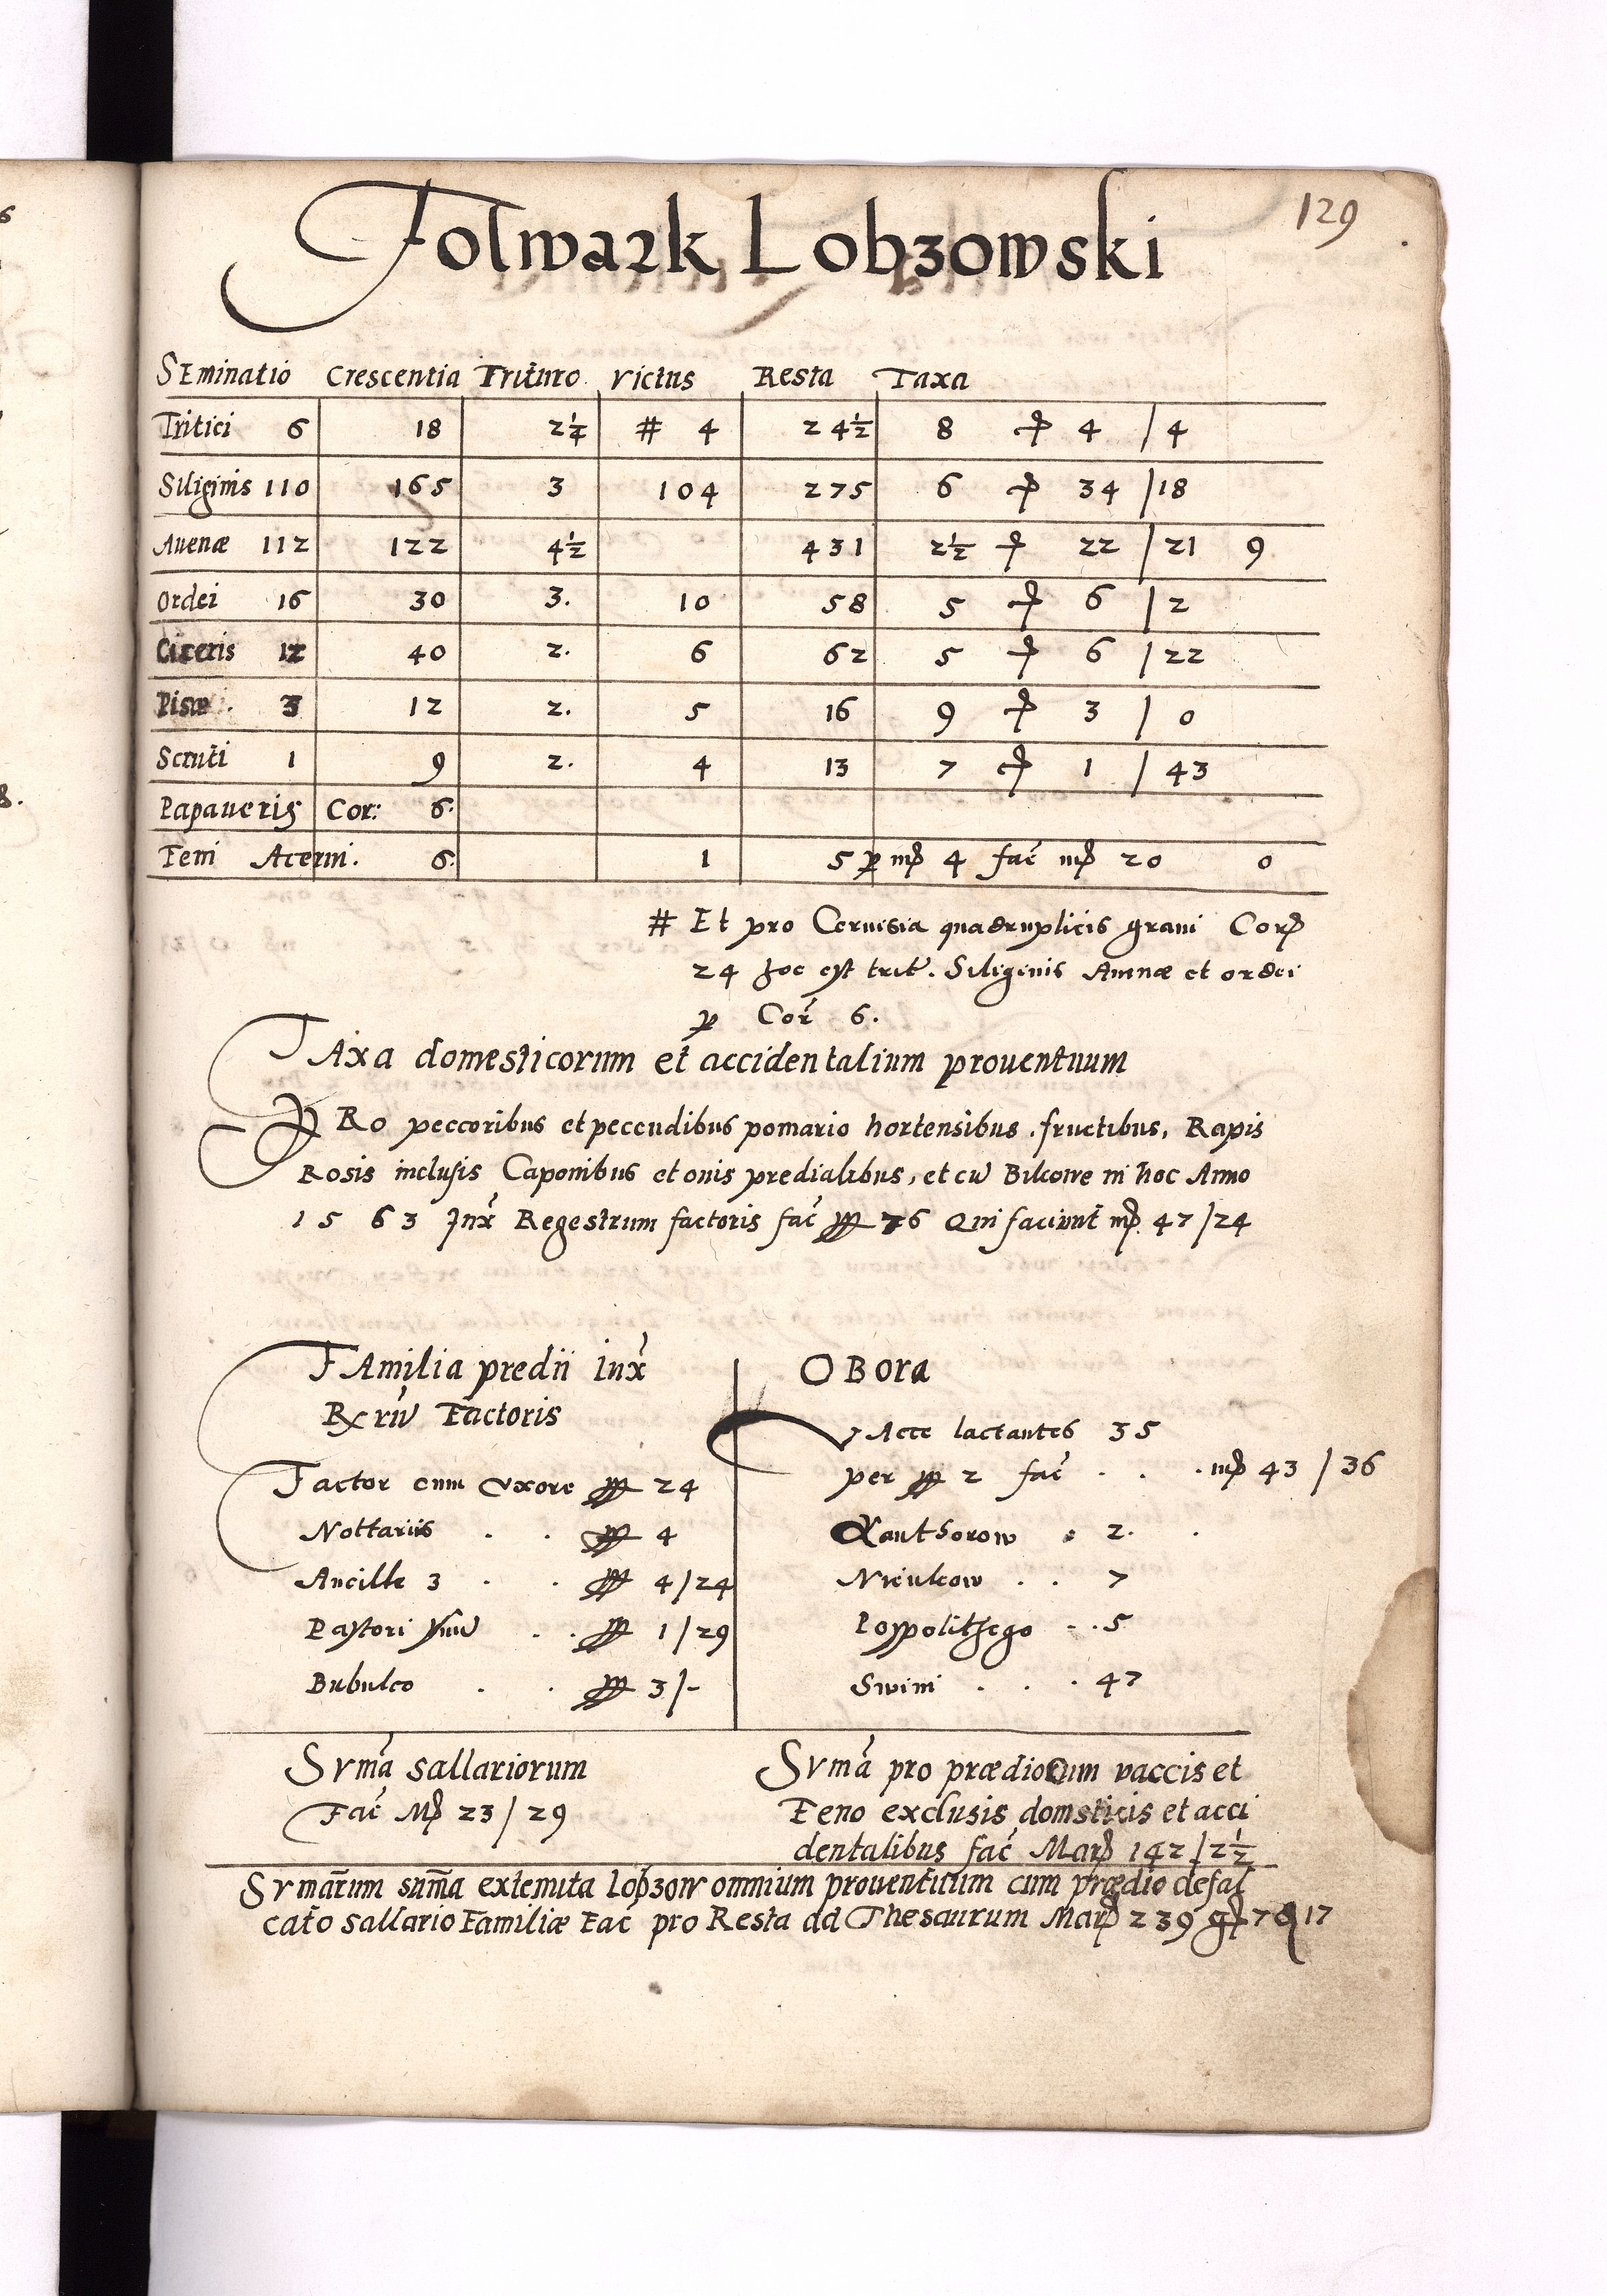 129
Folwark Lobzowski
Seminatio Crescentia Trituro Victus Resta Taxa
Tritici 6 18 2¼ # 4 24½ 8 4 / 4
Siliginis 110 165 3 104 275 6 34 / 18
Auenæ 112 122 4½ 431 2½ 22 / 21 9
Ordei 16 30 3. 10 58 5 6 / 2
Ciceris 12 40 2. 6 62 5 6 / 22
Pisæ . 3 12 2. 5 16 9 3 / 0
Scruti 1 9 2. 4 13 7 1 / 43
Papaueris Cor: 6.
Feni Acerui. 6. 1 5 4 fac̃ 20 0
# Et pro Ceruisia quadruplicis grani Cor
24 hoc est trit. Siliginis Auenæ et ordei
p Cor̃ 6.
Taxa domesticorum et accidentalium prouentuum
PRo peccoribus et pecudibus pomario hortensibus, fructibus, Rapis
Rosis inclusis Caponibus et ouis predialibus, et cũ Bilcowe in hoc Anno
1563 Iux̃ Regestrum factoris fac̃ 76 Qui faciunt 47/24
Familia predii iux̃ Obora
Rx rũ Factoris
Vacce lactantes 35
per 2 fac̃ . . . 43 / 36
Factor cum Vxore 24
Nottariis . . 4
Ancille 3 . . 4/24
Pastori . . 1/29
Bubulco . . 3/-
2. .
. . 7
Pospolithego . . 5
Swini . . . 47
Sum̃a sallariorum
Fac̃ 23/29
Sum̃a pro prædiorum vaccis et
Feno exclusis domsticis et acci
dentalibus fac̃ Mar 142/2½
Sum̃arum sum̃a extenuta Lobzow omnium prouentuum cum prædio defal
cato sallario Familiæ Fac̃ pro Resta ad Thesaurum Mar 239 7 17